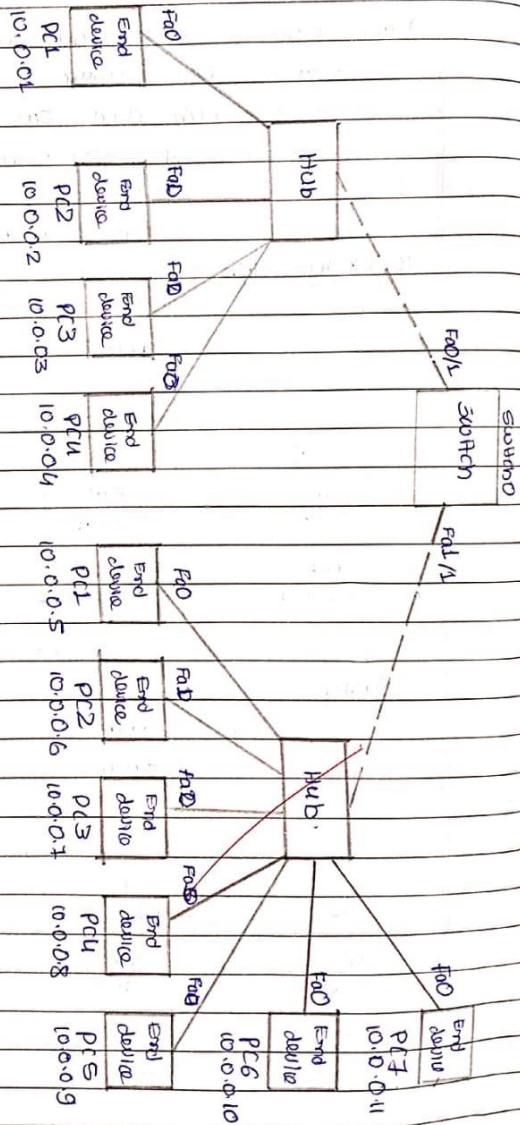 Switch0
Switch
Fa0/1
Fa1/1
Hub
Fa0
End
device
PC1
10.0.01
Fa0
End
device
PC2
10.0.0.2
Fa0
End
device
PC3
10.0.03
End
device
PC4
10.0.04
Hub.
Fa0
End
device
PC1
10.0.0.5
End
device
PC2
10.0.0.6
End
device
PC3
10.0.0.7
End
device
PC4
10.0.0.8
End
device
PC5
10.0.0.9
Fa0
End
device
PC6
10.0.0.10
Fa0
End
device
PC7
10.0.0.11